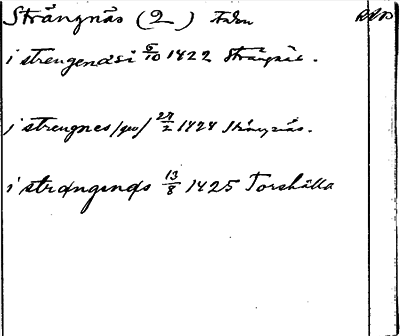 Strängnäs (2)
i strengenäsi 6/10 1422 Strängnäs.
i strengnes /geo/ 27/2 1424 Strängnäs.
i strængenæs 13/8 1425 Torshälla